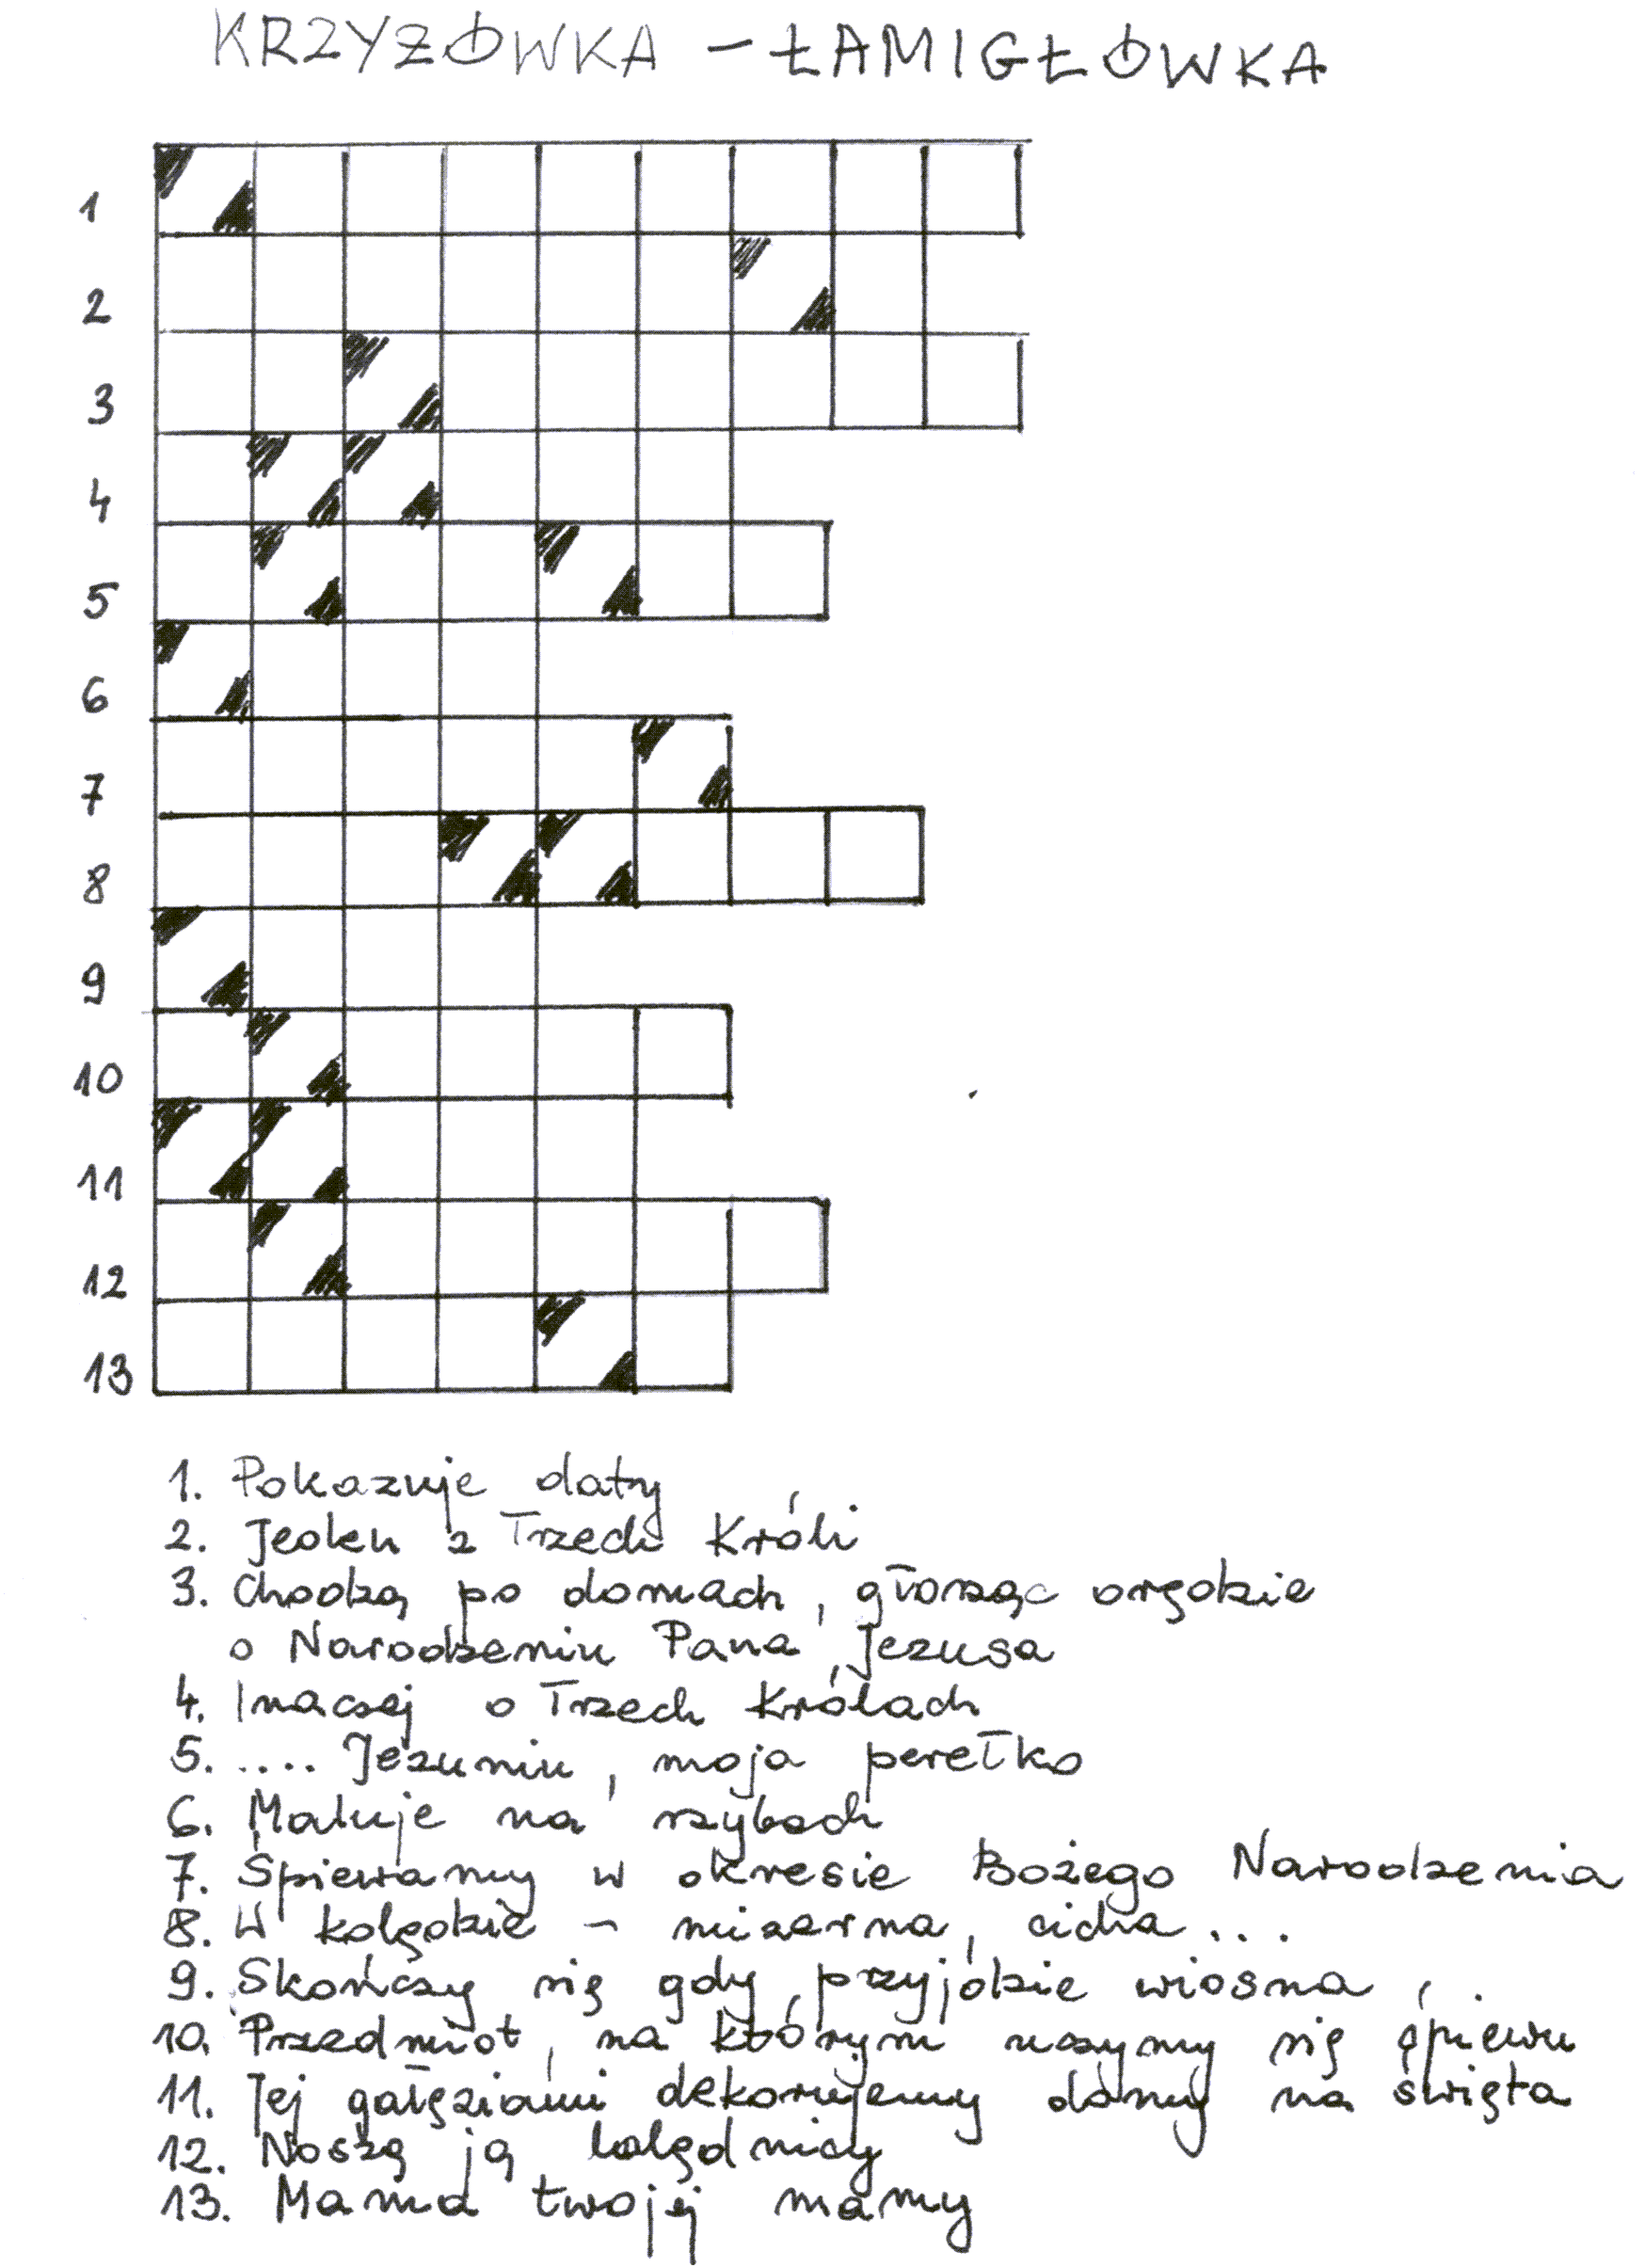 KRZYŻÓWKA – ŁAMIGŁÓWKA
1
2
3
4
5
6
7
8
9
10
11
12
13
1. Pokazuje daty
2. Jeden z Trzech Króli
3. Chodzą po domach, głosząc orędzie
o Narodzeniu Pana Jezusa
4. Inaczej o Trzech Królach
5. .... Jezuniu, moja perełko
6. Maluje na szybach
7. Śpiewamy w okresie Bożego Narodzenia
8. W kolędzie – mizerna, cicha...
9. Skończy się gdy przyjdzie wiosna
10. Przedmiot, na którym uczymy się śpiewu
11. Jej gałęziami dekorujemy domy na święta
12. Noszą ją kolędnicy
13. Mama twojej mamy